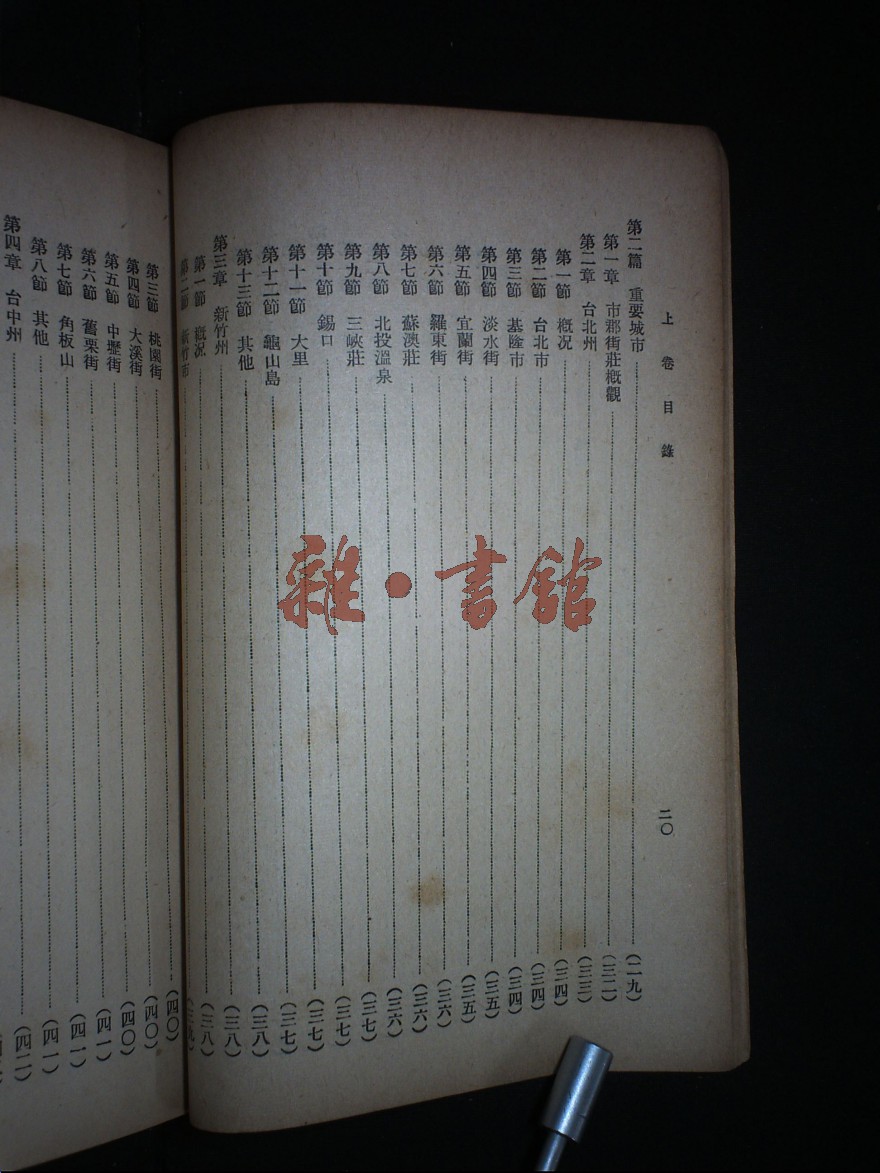 上卷目錄
二〇
第二篇 重要城市……(二九)
第一章 市郡街莊概觀……(三二)
第二章 台北州……(三三)
第一節 概況……(三四)
第二節 台北市……(三四)
第三節 基隆市……(三四)
第四節 淡水街……(三五)
第五節 宜蘭街……(三五)
第六節 羅東街……(三六)
第七節 蘇澳莊……(三六)
第八節 北投溫泉……(三六)
第九節 三峽莊……(三七)
第十節 錫口……(三七)
第十一節 大里……(三七)
第十二節 龜山島……(三七)
第十三節 其他……(三八)
第三章 新竹州……(三八)
第一節 概況……(三八)
第二節 新竹市……(三九)
第三節 桃園街……(四〇)
第四節 大溪街……(四〇)
第五節 中壢街……(四〇)
第六節 舊栗街……(四一)
第七節 角板山……(四一)
第八節 其他……(四一)
第四章 台中州……(四二)
雜·書館